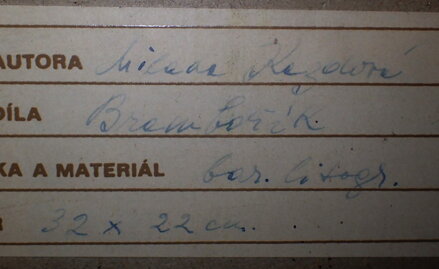 AUTORA Milada Kazdová
DÍLA Brambořík
KA A MATERIÁL bar. litogr.
R 32 x 22 cm.